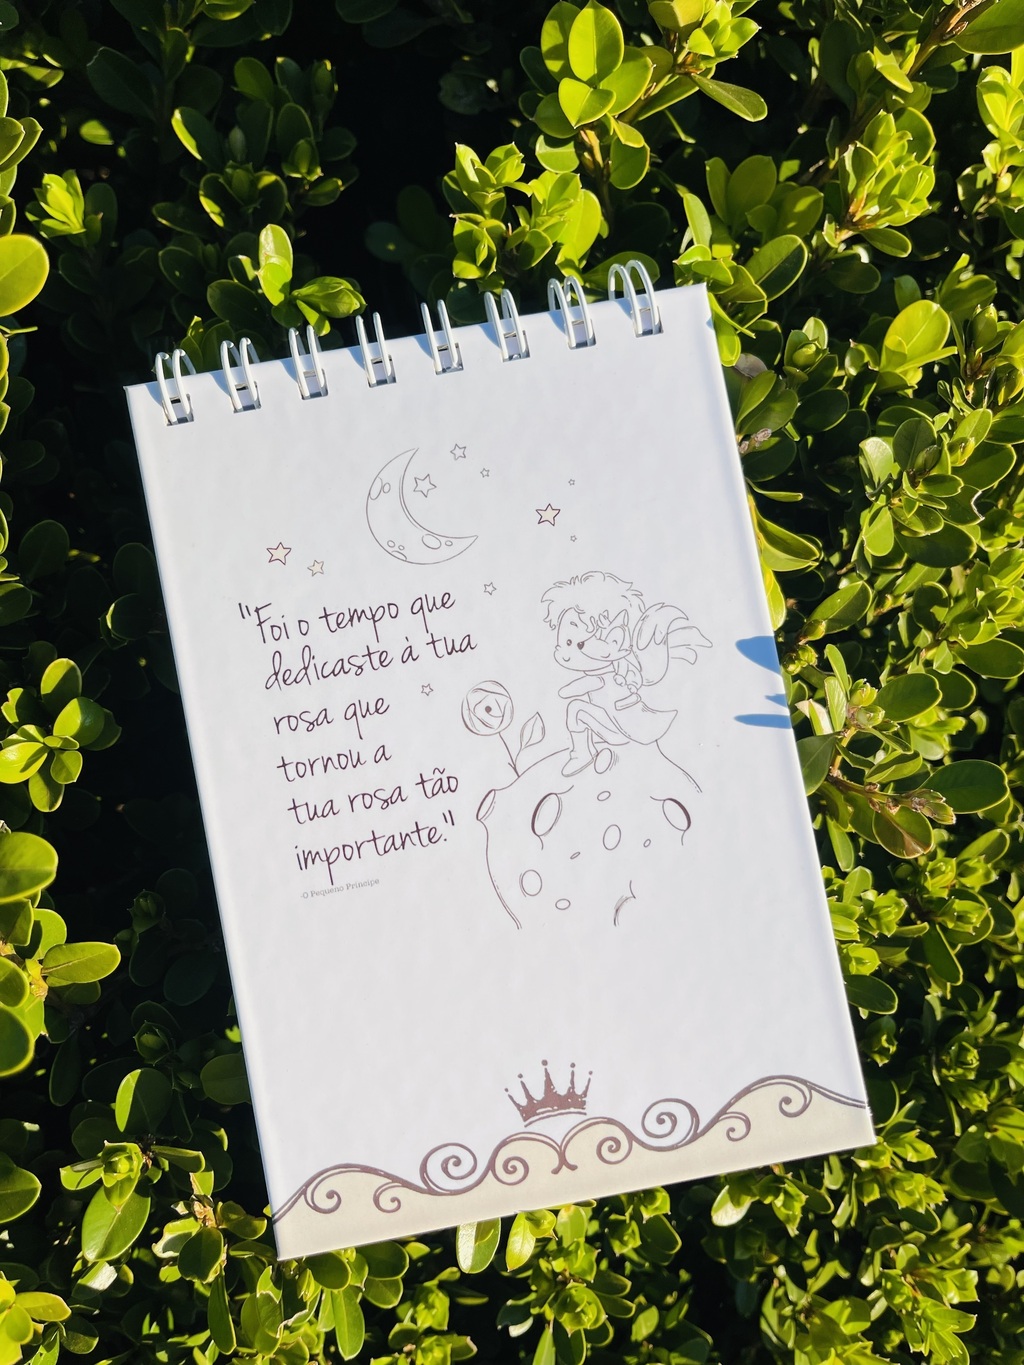 "Foi o tempo que
dedicaste à tua
rosa que
tornou a
tua rosa tão
importante."
-O Pequeno Príncipe